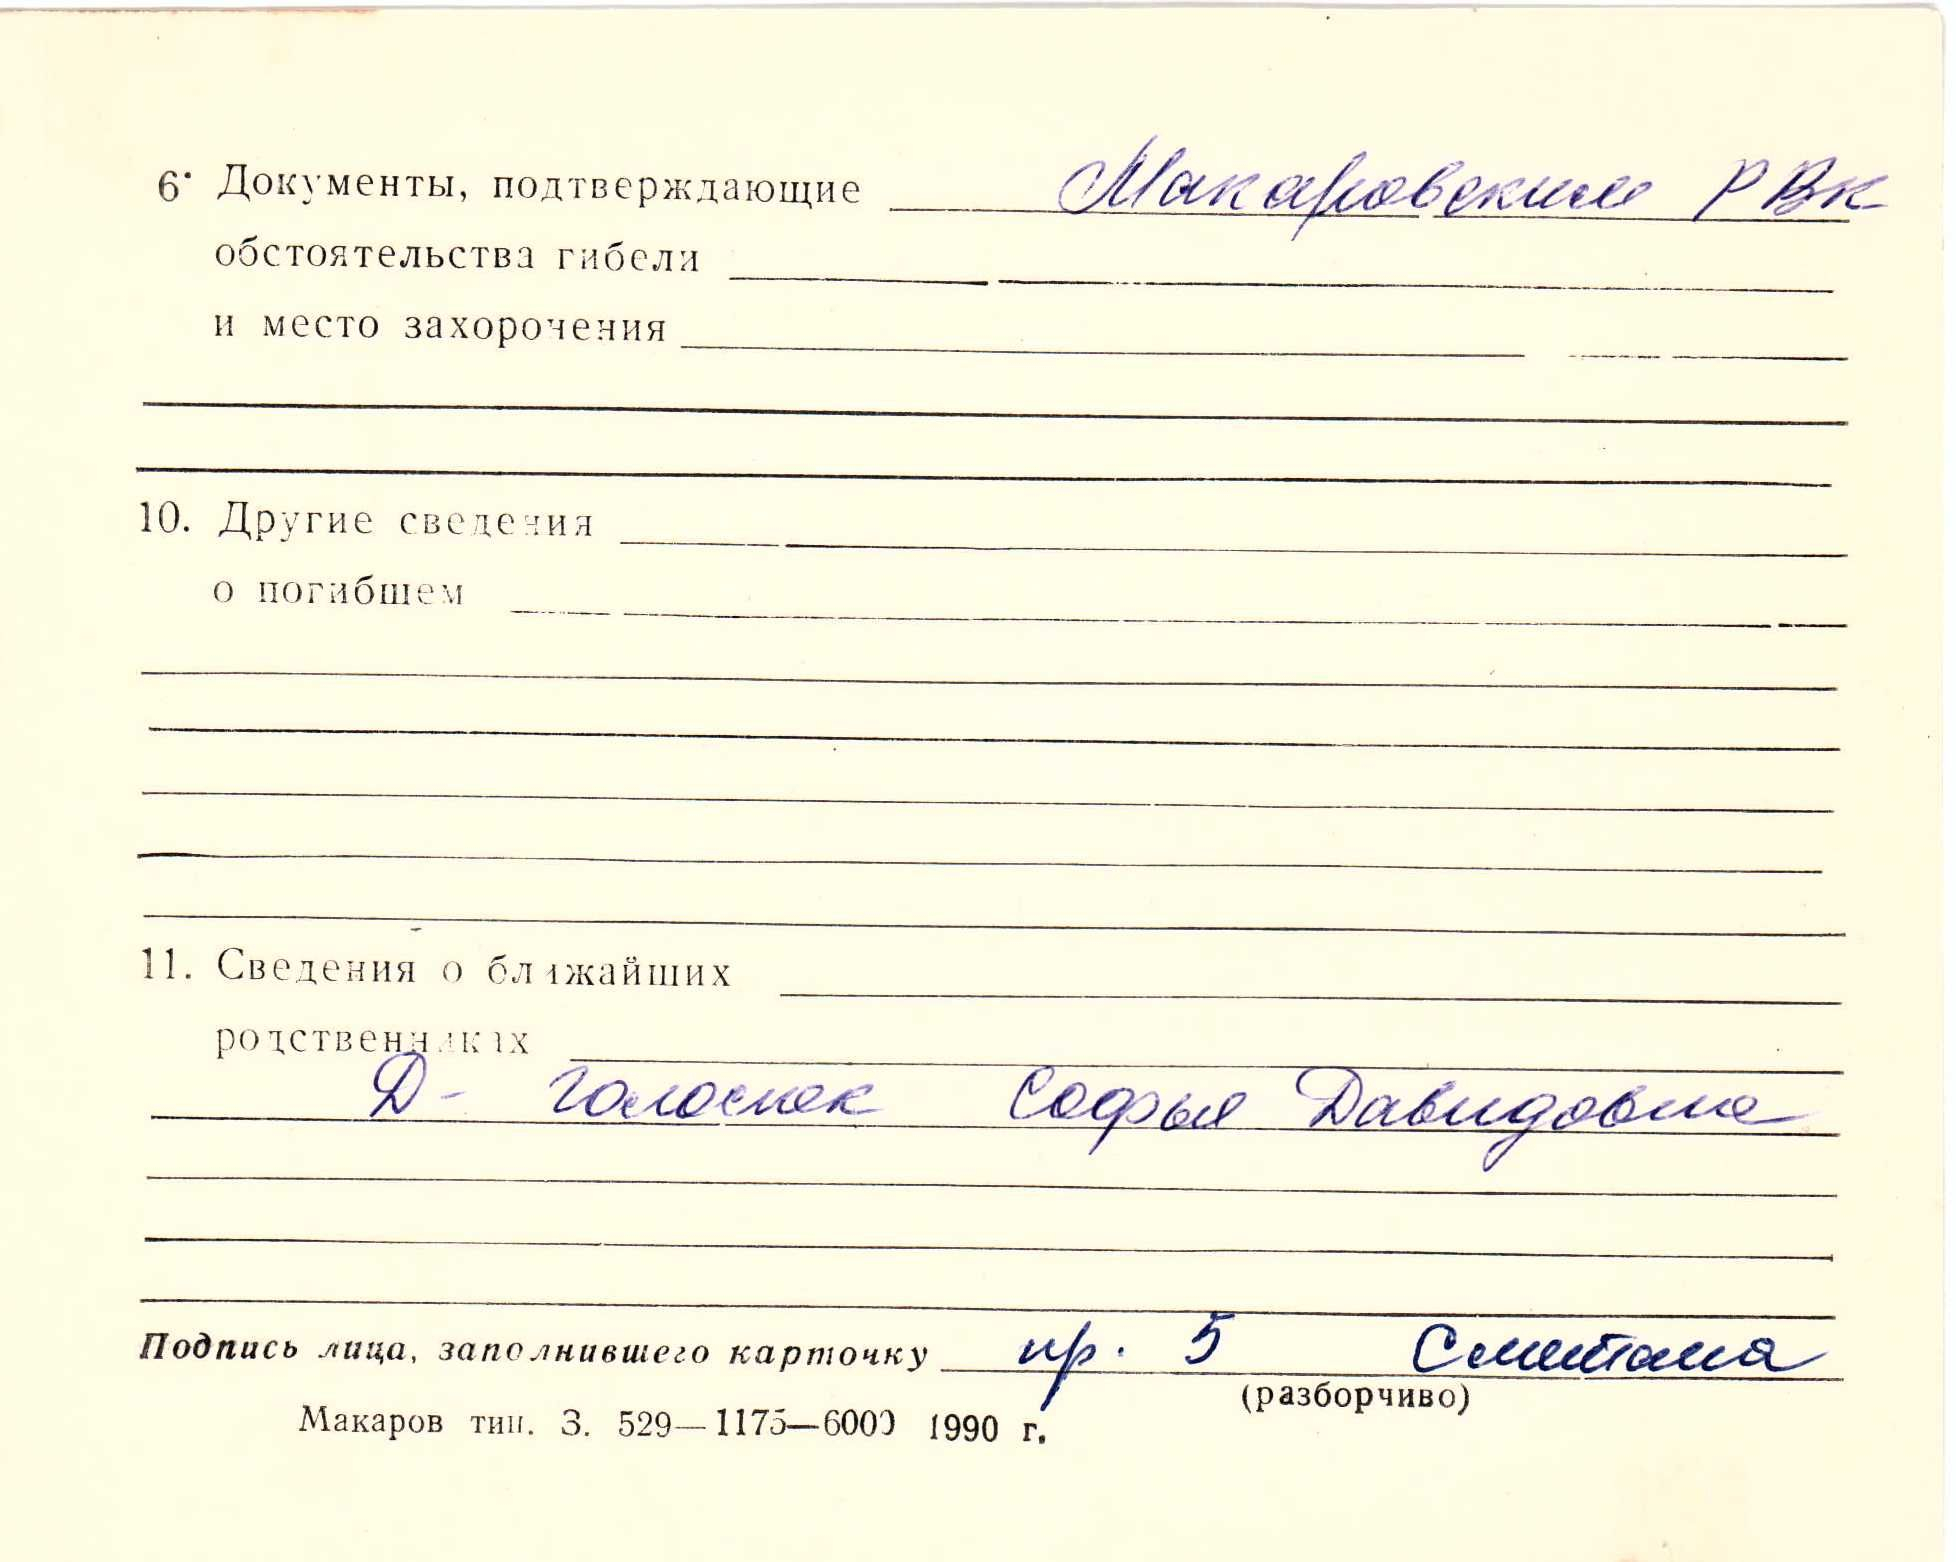 6. Документы, подтверждающие Макаровским РВК
обстоятельства гибели
и место захорочения
10. Другие сведения
о погибшем
11. Сведения о ближайших
родственниках
Д- Софья Давидовна
Подпись лица, заполнившего карточку пр. 5 Сметана
(разборчиво)
Макаров тип. З. 529—1175—6000 1990 г.